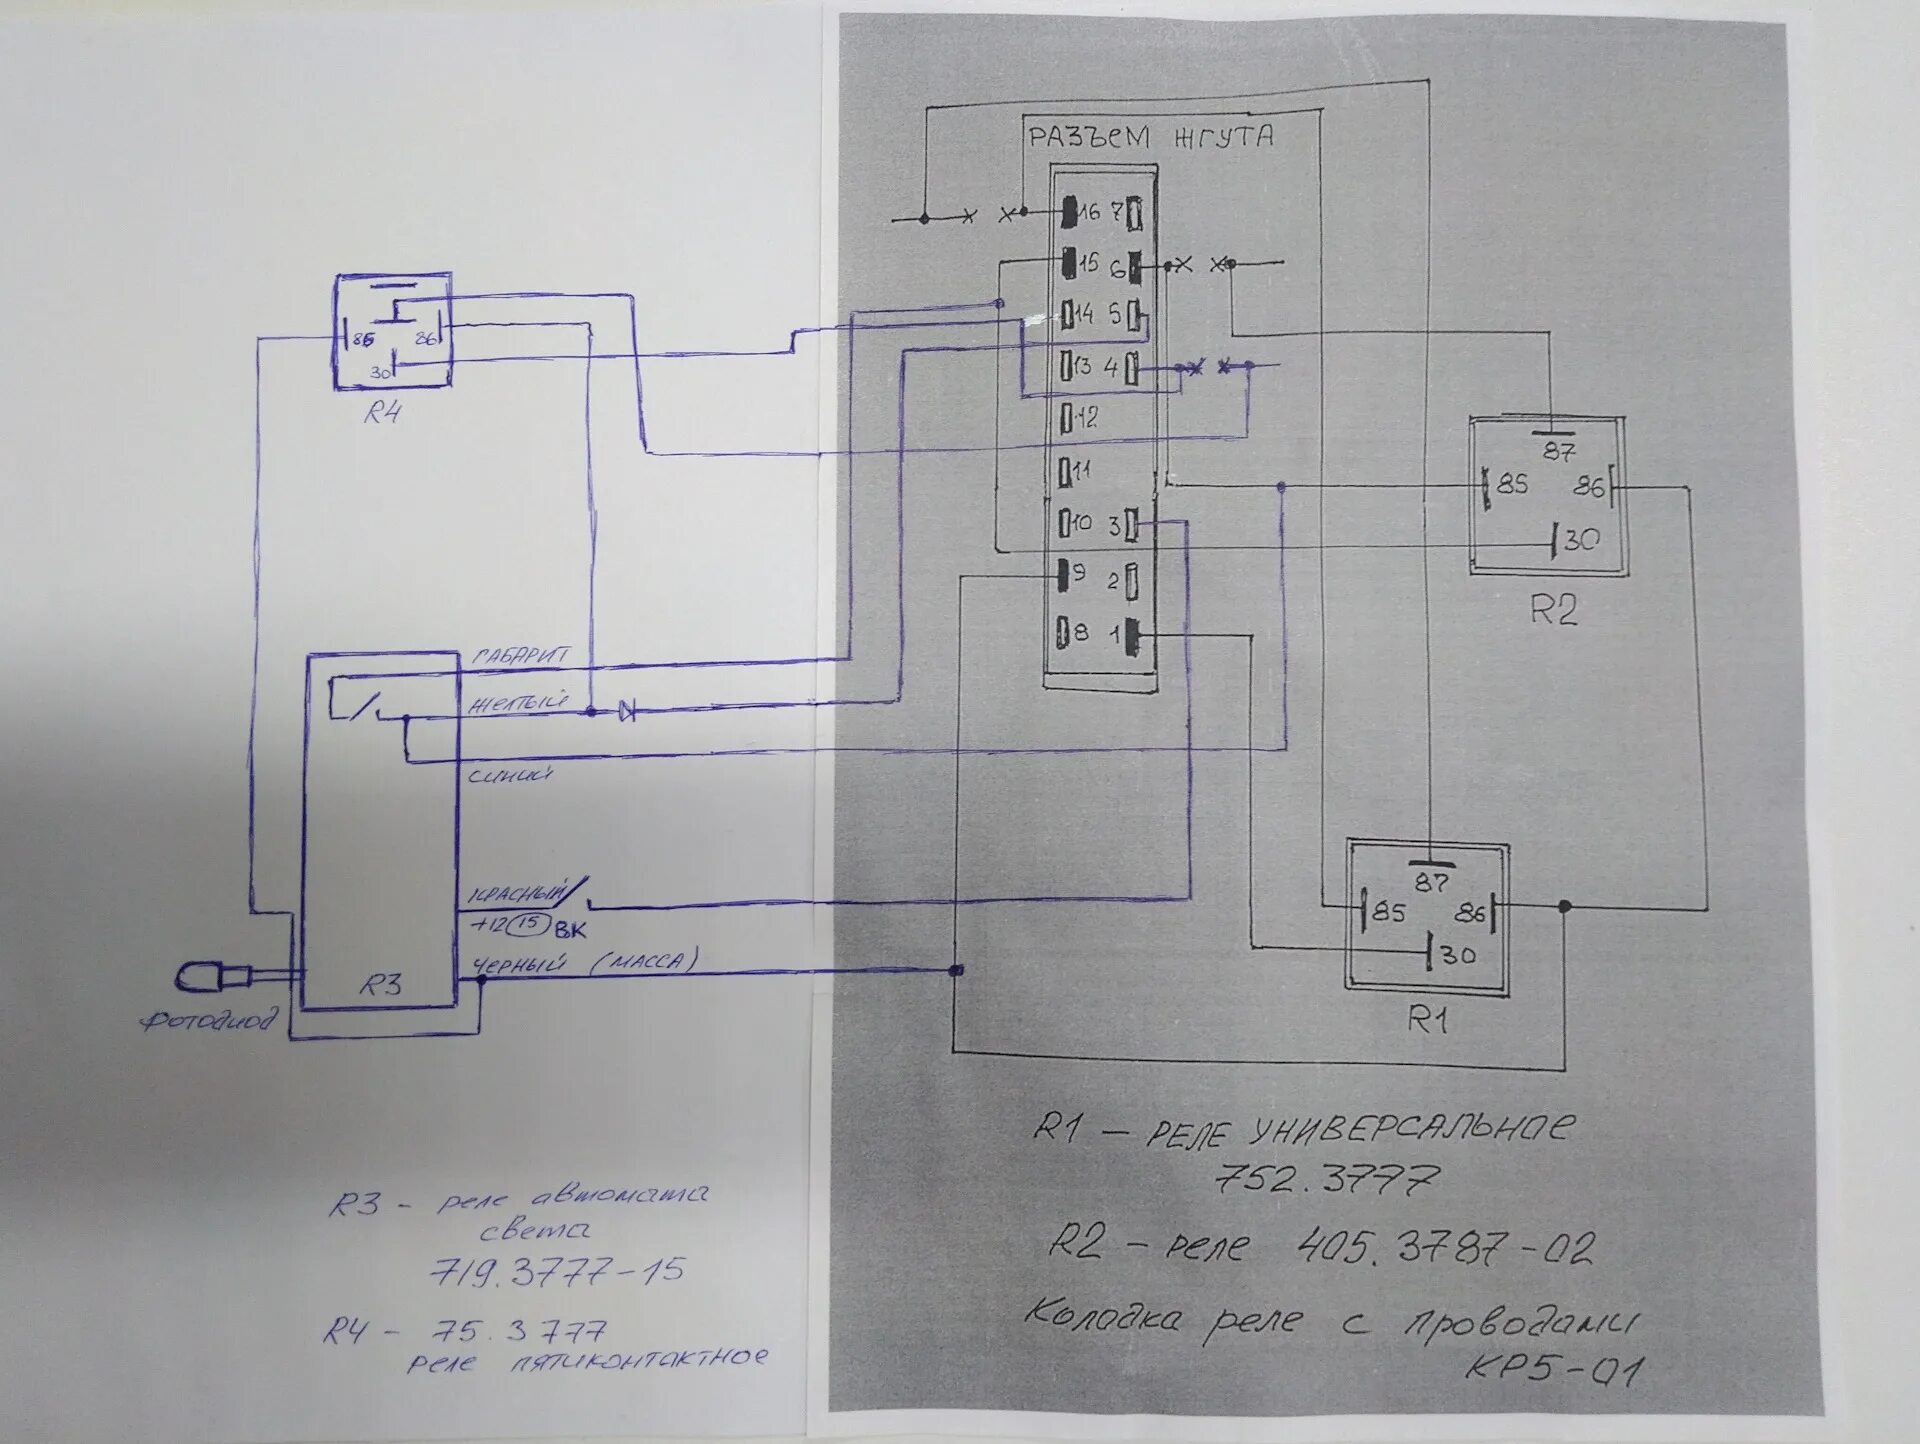 РАЗЪЕМ ЖГУТА
16 7
15 6
14 5
13 4
12
11
10 3
9 2
8 1
85 86
30
R4
87
85 86
30
R2
ГАБАРИТ
ЖЕЛТЫЙ
СИНИЙ
КРАСНЫЙ
+12 15 ВК
ЧЕРНЫЙ (МАССА)
R3
фотодиод
87
85 86
30
R1
R3 - реле автомата
света
719.3777-15
R4 - 75.3777
реле пятиконтактное
R1 - РЕЛЕ УНИВЕРСАЛЬНОЕ
752.3777
R2 - реле 405.3787-02
Колодка реле с проводами
КР5-01